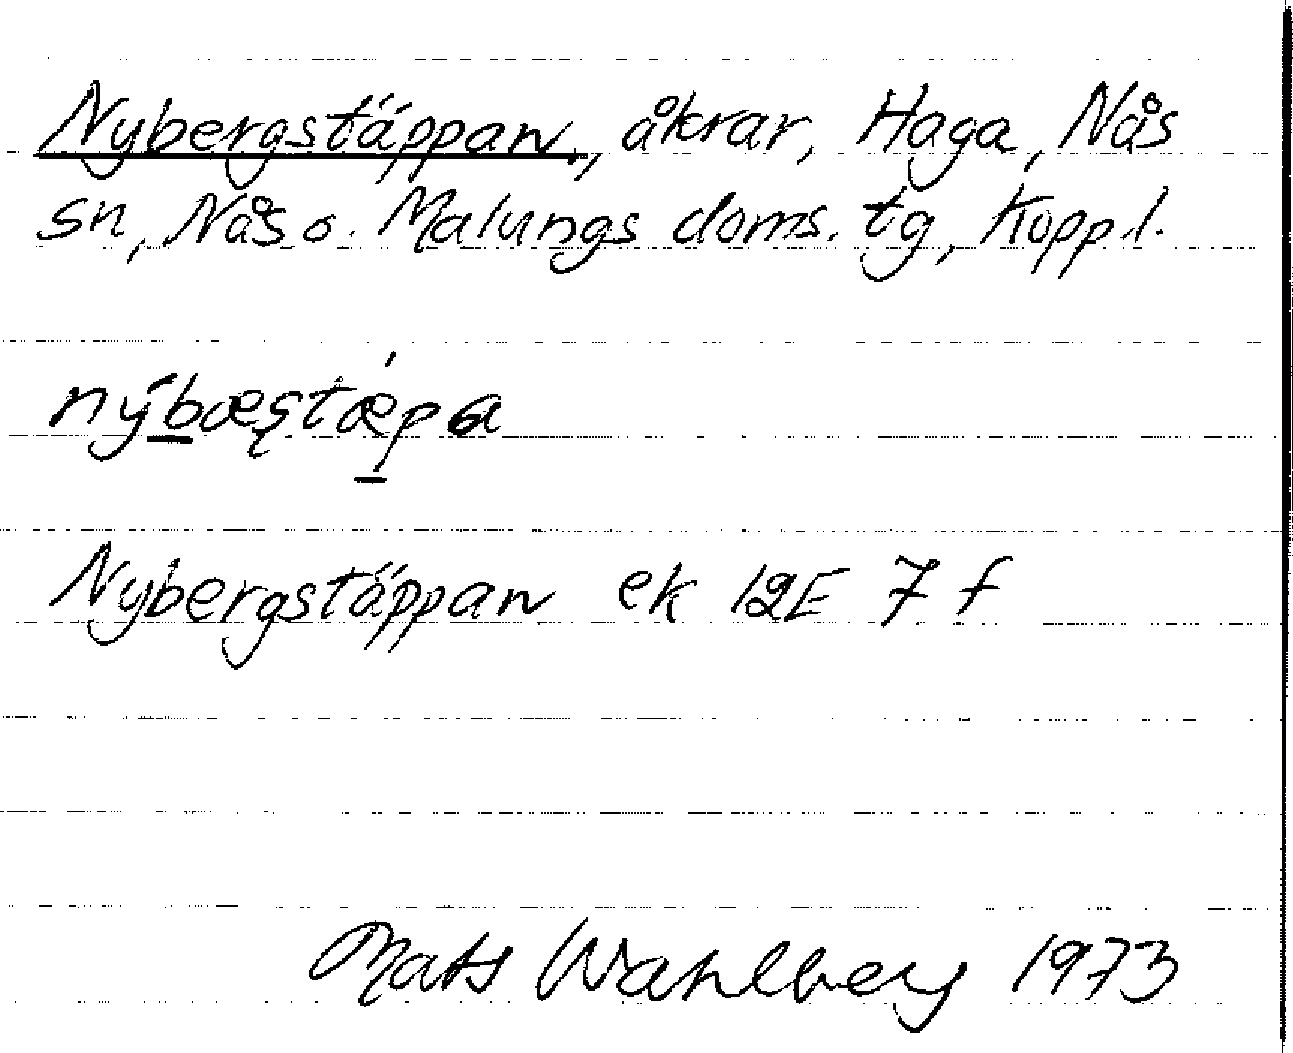 Nybergstäppan, åkrar, Haga, Nås
sn, Nås o. Malungs doms. tg, Koppl.
nýbæştǽpa
Nybergstäppan ek 12E 7 f
Mats Wahlberg 1973